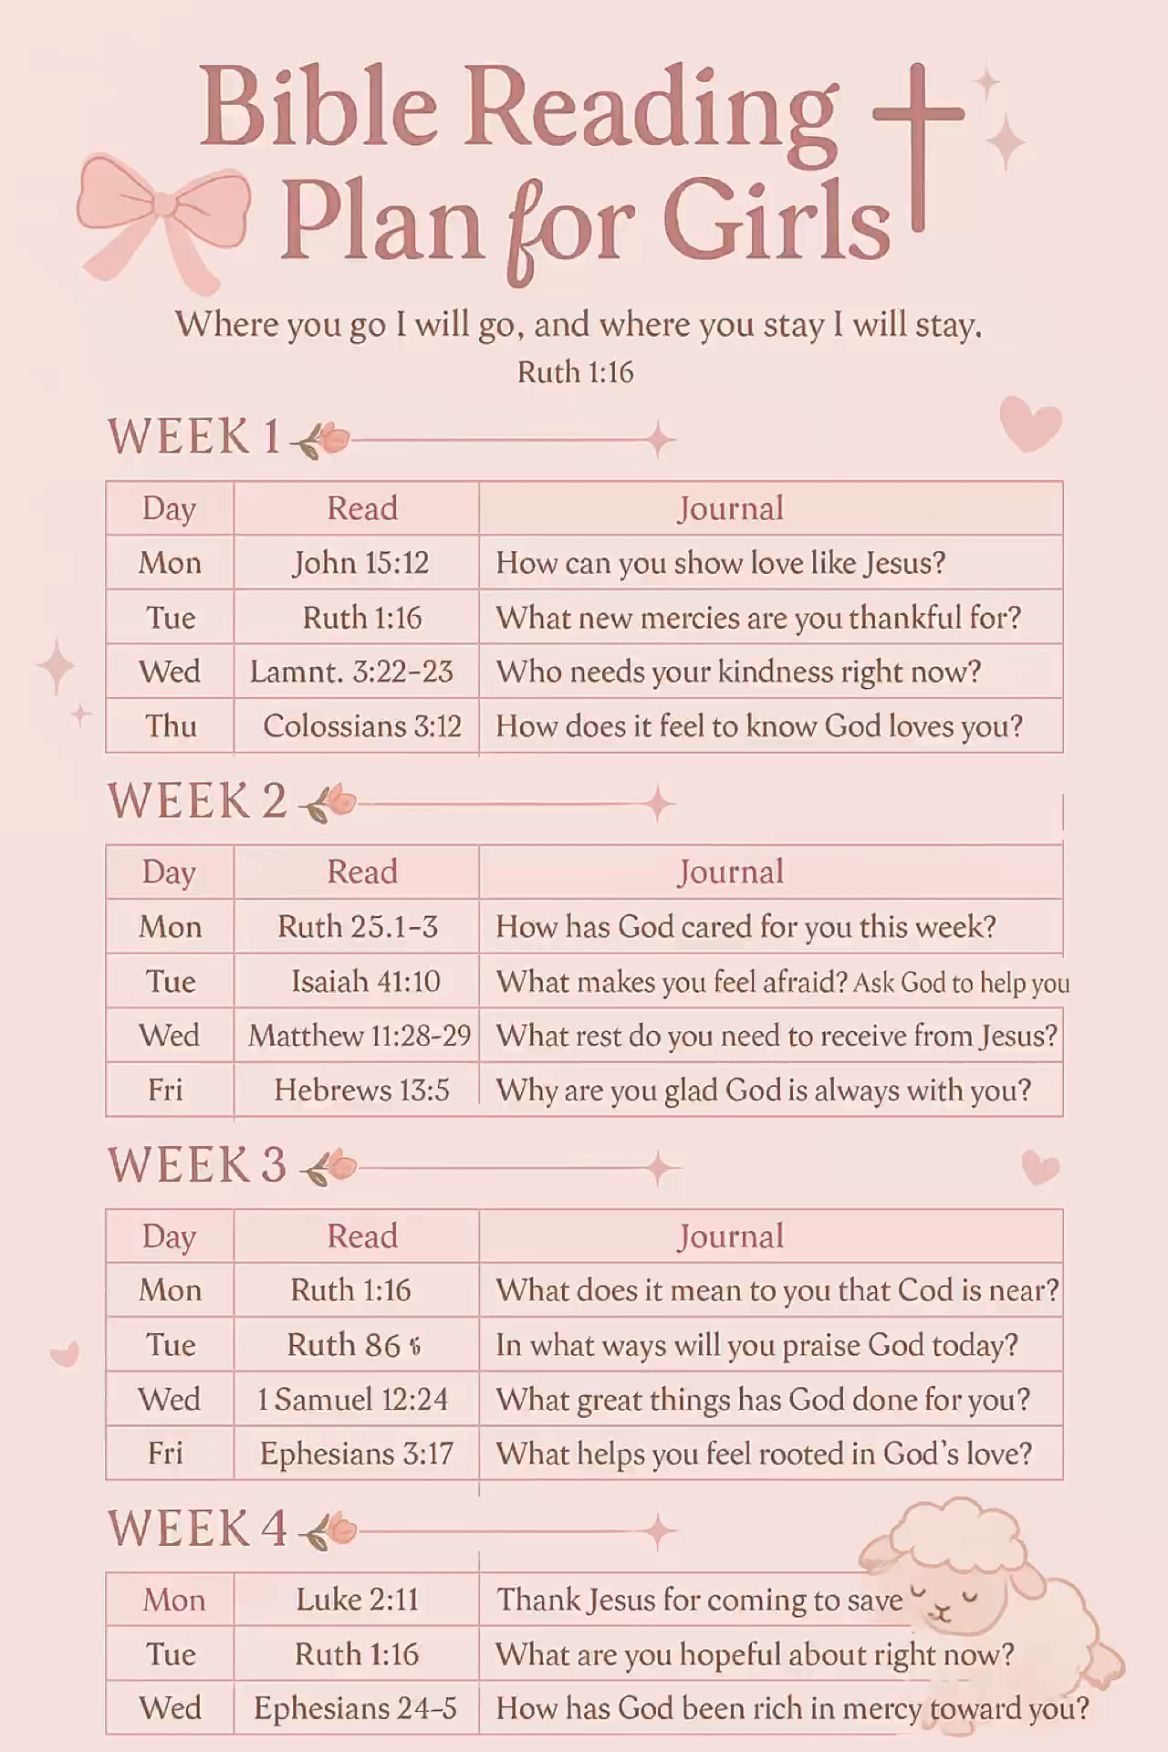 Bible Reading
Plan for Girls
Where you go I will go, and where you stay I will stay.
Ruth 1:16
WEEK 1
Day Read Journal
Mon John 15:12 How can you show love like Jesus?
Tue Ruth 1:16 What new mercies are you thankful for?
Wed Lamnt. 3:22-23 Who needs your kindness right now?
Thu Colossians 3:12 How does it feel to know God loves you?
WEEK 2
Day Read Journal
Mon Ruth 25.1-3 How has God cared for you this week?
Tue Isaiah 41:10 What makes you feel afraid? Ask God to help you
Wed Matthew 11:28-29 What rest do you need to receive from Jesus?
Fri Hebrews 13:5 Why are you glad God is always with you?
WEEK 3
Day Read Journal
Mon Ruth 1:16 What does it mean to you that Cod is near?
Tue Ruth 86 In what ways will you praise God today?
Wed 1 Samuel 12:24 What great things has God done for you?
Fri Ephesians 3:17 What helps you feel rooted in God's love?
WEEK 4
Mon Luke 2:11 Thank Jesus for coming to save
Tue Ruth 1:16 What are you hopeful about right now?
Wed Ephesians 24-5 How has God been rich in mercy toward you?